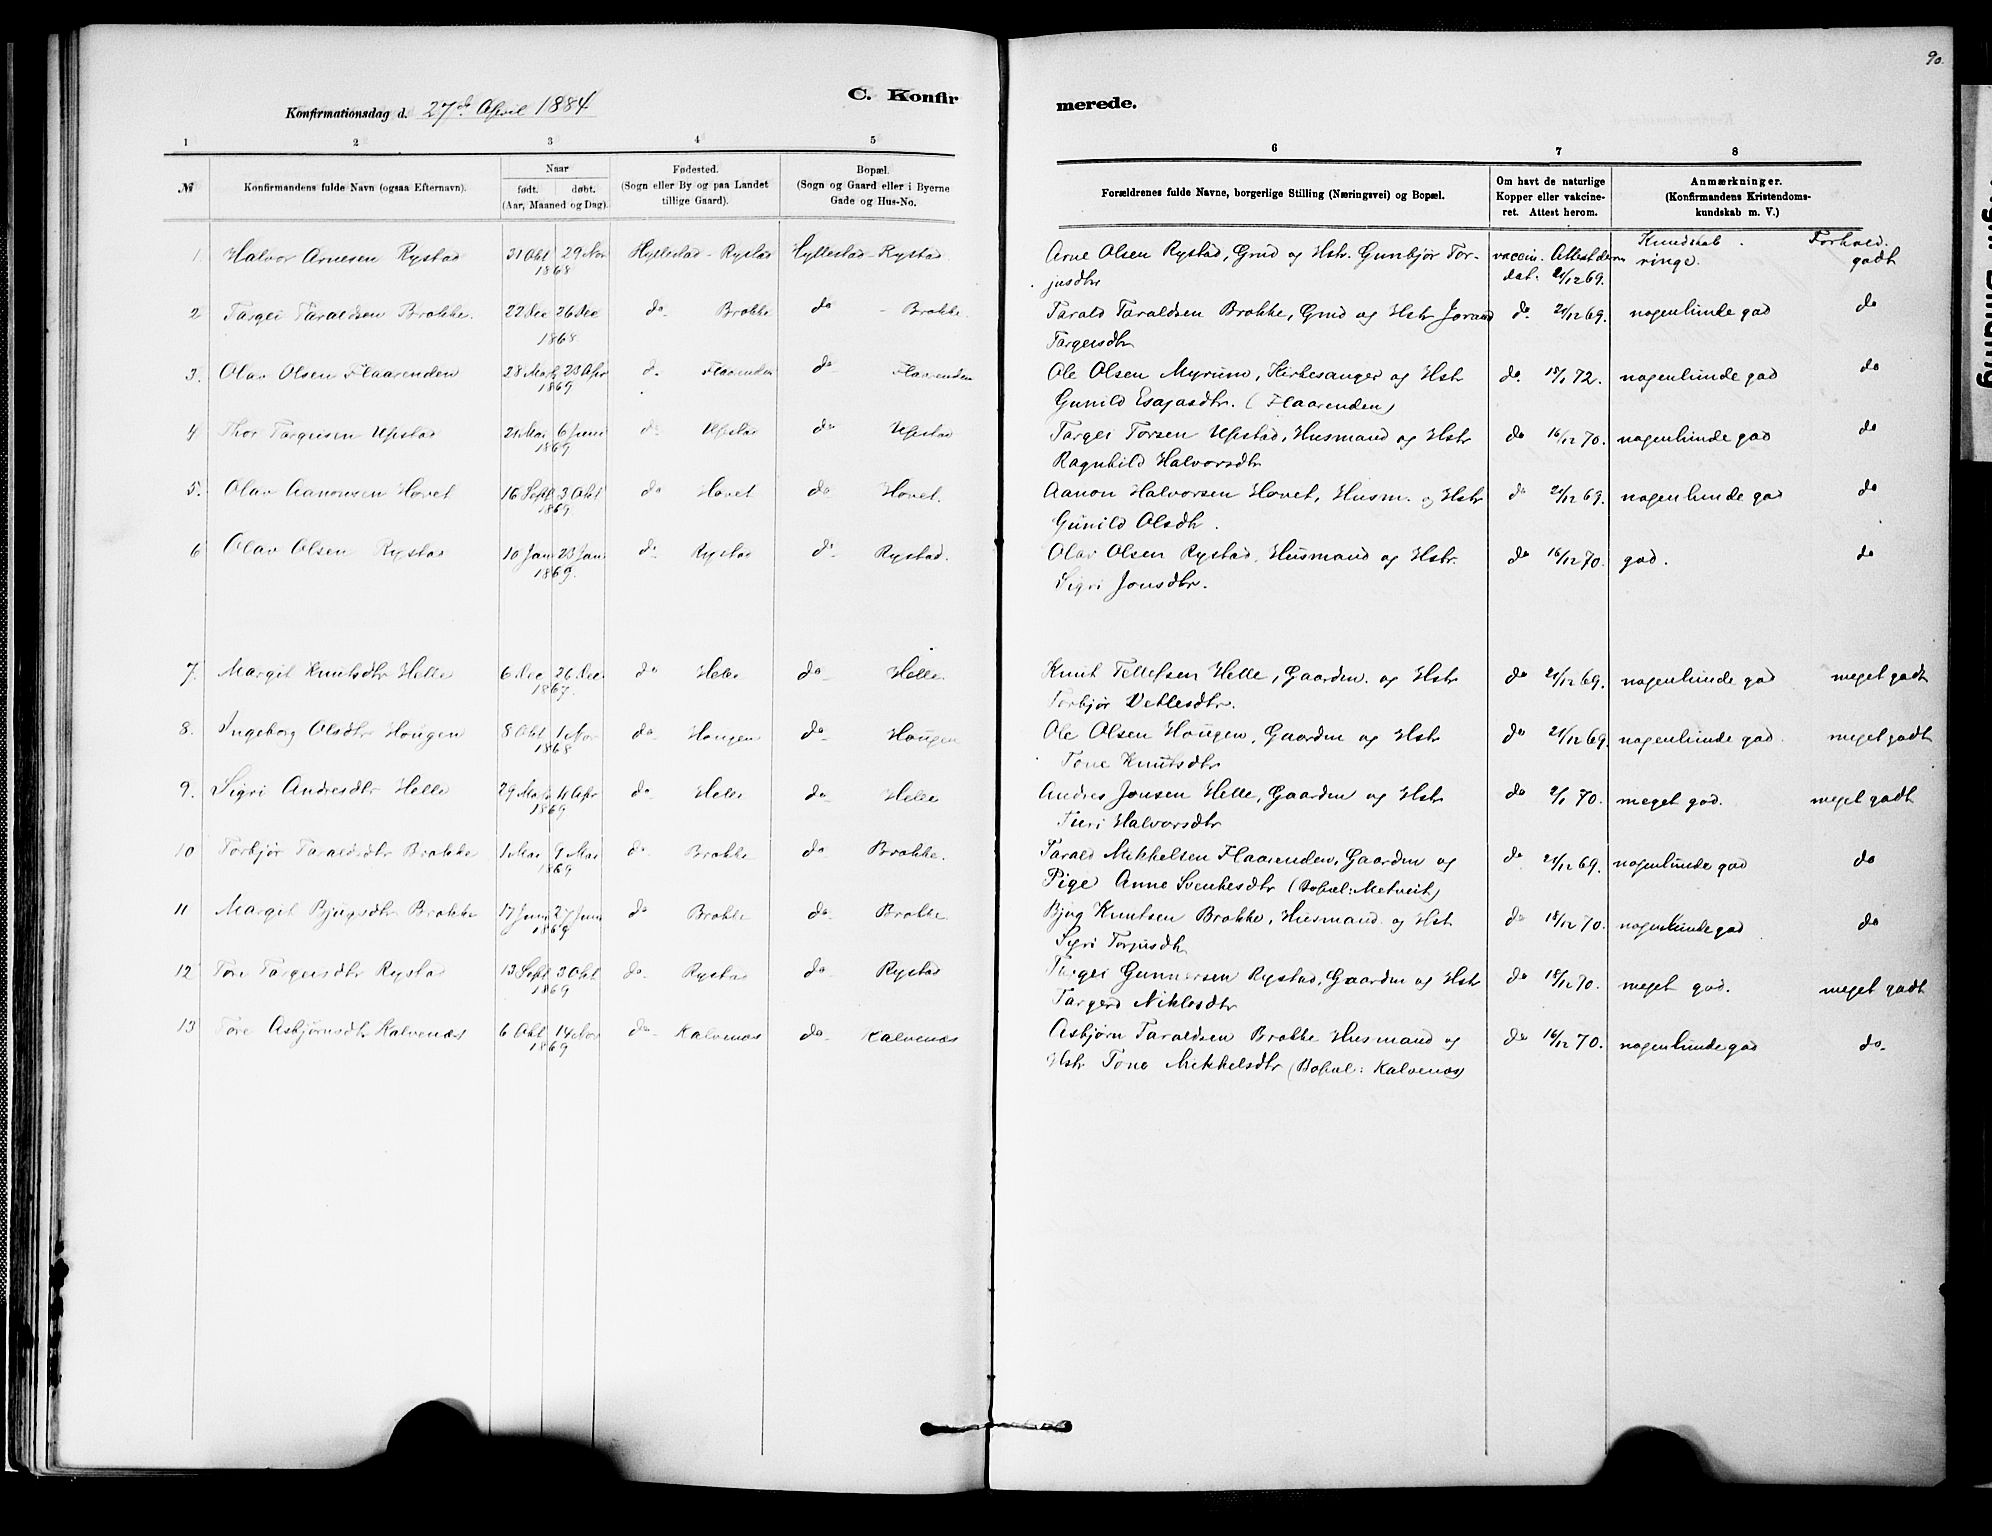 90.
C. Konfirmerede.
Konfirmationsdag d. 27de April 1884
1 2 3 4 5 6 7 8
№
Konfirmandens fulde Navn (ogsaa Efternavn).
Naar
født. døbt.
(Aar, Maaned og Dag).
Fødested.
(Sogn eller By og paa Landet
tillige Gaard).
Bopæl.
(Sogn og Gaard eller i Byerne
Gade og Hus-No.
Forældrenes fulde Navne, borgerlige Stilling (Næringsvei) og Bopæl.
Om havt de naturlige
Kopper eller vakcine-
ret. Attest herom.
Anmærkninger.
(Konfirmandens Kristendoms-
kundskab m. V.)
Kundskab. Forhold.
1. Halvor Arnesen Rystad 31 Okt 29 Nov Hyllestad - Rystad Hyllestad - Rystad. Arne Olsen Rystad, Grud og Hstr. Gunbjør Tor- vaccin. Attest derom ringe. godt
1868 jusdtr dat. 21/12 69.
2 Targei Taraldsen Brokke. 22 Dec 26 Dec do Brokke do - Brokke. Tarald Taraldsen Brokke, Grud og Hstr Jorand do. 21/12 69. nogenlunde god do
1868 Targeisdtr
3. Olav Olsen Flaarenden 28 Mark 23 Apr do Flaarenden do Flaarenden Ole Olsen Myrum, Kirkesanger og Hstr do. 18/1 72. nogenlunde god do
1869 Gunild Esajasdtr. (Flaarenden)
4 Thor Targeisen Ufistad 21 Mai 6 Juni do Ufstad do Ufstad Targei Torsen Ufistad, Husmand og Hstr do 16/12 70. nogenlunde god do
1869 Ragnhild Halvorsdtr
5. Olav Aanonsen Hovet 16 Sept 3 Okt do Hovet do Hovet. Aanon Halvorsen Hovet, Husm. og Hstr do 21/12 69. nogenlunde god do
1869. Gunild Olsdtr.
6 Olav Olsen Rystad 10 Jan 23 Jan do Rystad do Rystad. Olav Olsen Rystad, Husmand og Hstr. do 16/12 70. god. do
1869. Sigri Jonsdtr.
7. Margit Knutsdtr Helle 6 Dec 26 Dec. do Helle do Helle. Knut Tellefsen Helle, Gaardm. og Hstr do 21/12 69. nogenlunde god meget godt
1867. Torbjør Detlesdtr.
8. Ingeborg Olsdtr Hougen 8 Okt 1 Nov do Hougen do Hougen Ole Olsen Hougen, Gaardm og Hstr do 21/12 69. nogenlunde god. meget godt
1868 Tone Knutsdtr
9. Sigri Andresdtr Helle 29 Mark 4 Apr do Helle do Helle Andres Jonsen Helle, Gaardm og Hstr do 2/1 70. meget god. meget godt
1869 Turi Halvorsdtr
10 Torbjør Taraldsdtr Brokke 1 Mai 9 Mai do Brokke do Brokke. Tarald Mikkelsen Flaarenden, Gaardm og do 21/12 69. nogenlunde god do
1869 Pige Anne Svenkesdtr (Bopæl: Metveit)
11 Margit Bjugsdtr Brokke 17 Juni 27 Juni do Brokke do Brokke Bjug Knutsen Brokke, Husmand og Hstr do 18/12 70. nogenlunde god do
1869 Sigri Torjusdtr
12 Tore Targeisdtr Rystad 13 Sept 3 Okt do Rystad do Rystad Targei Gunnarsen Rystad, Gaardm og Hstr do 18/12 70. meget god. meget godt
1869 Targerd Niklesdtr
13 Tore Asbjørnsdtr Kalvenæs 6 Okt 14 Nov do Kalvenæs do Kalvenæs Asbjørn Taraldsen Brokke Husmand og do 16/12 70. nogenlunde god do
1869 Hstr Tone Mikkelsdtr (Bopæl: Kalvenæs)